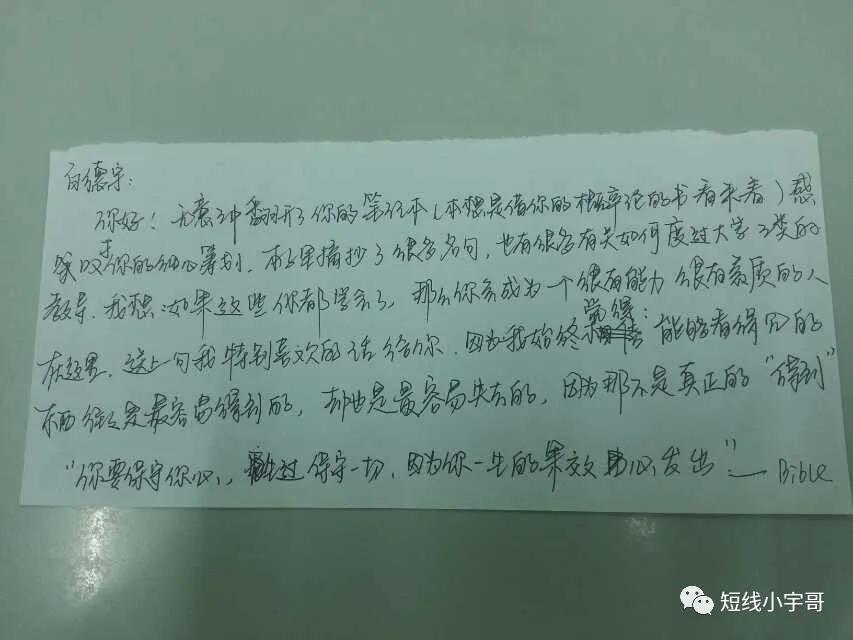 白德宇:
你好！无意中翻开了你的笔记本(本想是借你的概率论的书看来看)感
叹于你的细心筹划，本上里摘抄了很多名句，也有很多有关如何度过大学之类的
教导，我想:如果这些你都学会了，那么你会成为一个很有能力 很有素质的人
在这里，送上一句我特别喜欢的话给你，因为我始终觉得：能够看得见的
东西往往是最容易得到的，却也是最容易失去的，因为那不是真正的“得到”
“你要保守你心，胜过保守一切，因为你一生的果效由心发出”— Bible
短线小宇哥